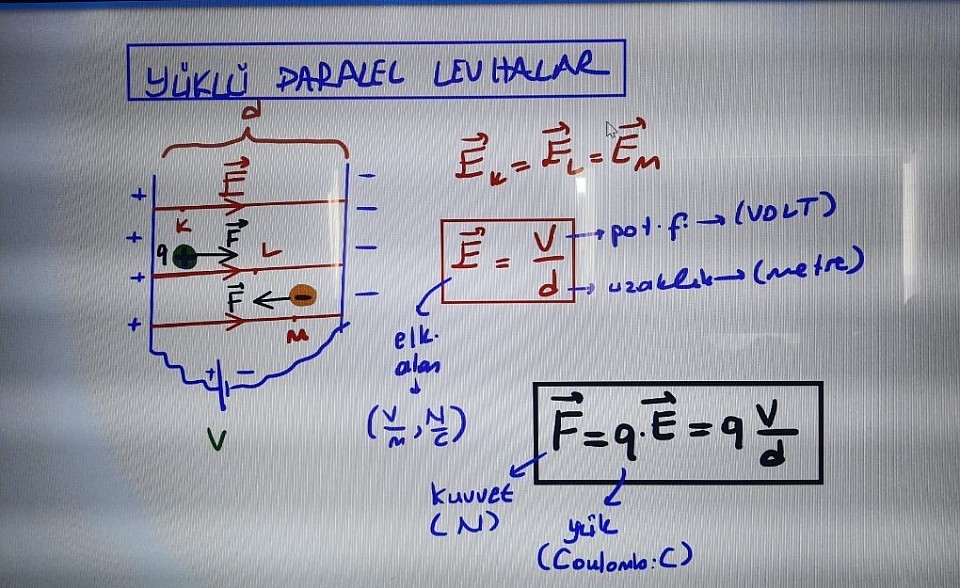 YÜKLÜ PARALEL LEVHALAR
d
E
K
q F
L
F
M
V
E_K = E_L = E_M
E = V/d
pot. f. → (VOLT)
uzaklık → (metre)
elk.
alan
(V/m, N/C)
F = q.E = q V/d
kuvvet
(N)
yük
(Coulomb: C)